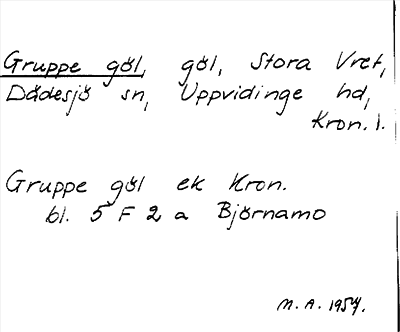 Gruppe göl, göl, Stora Vret,
Dädesjö sn, Uppvidinge hd,
Kron. l.
Gruppe göl ek Kron.
bl. 5 F 2 a Björnamo
M. A. 1957.